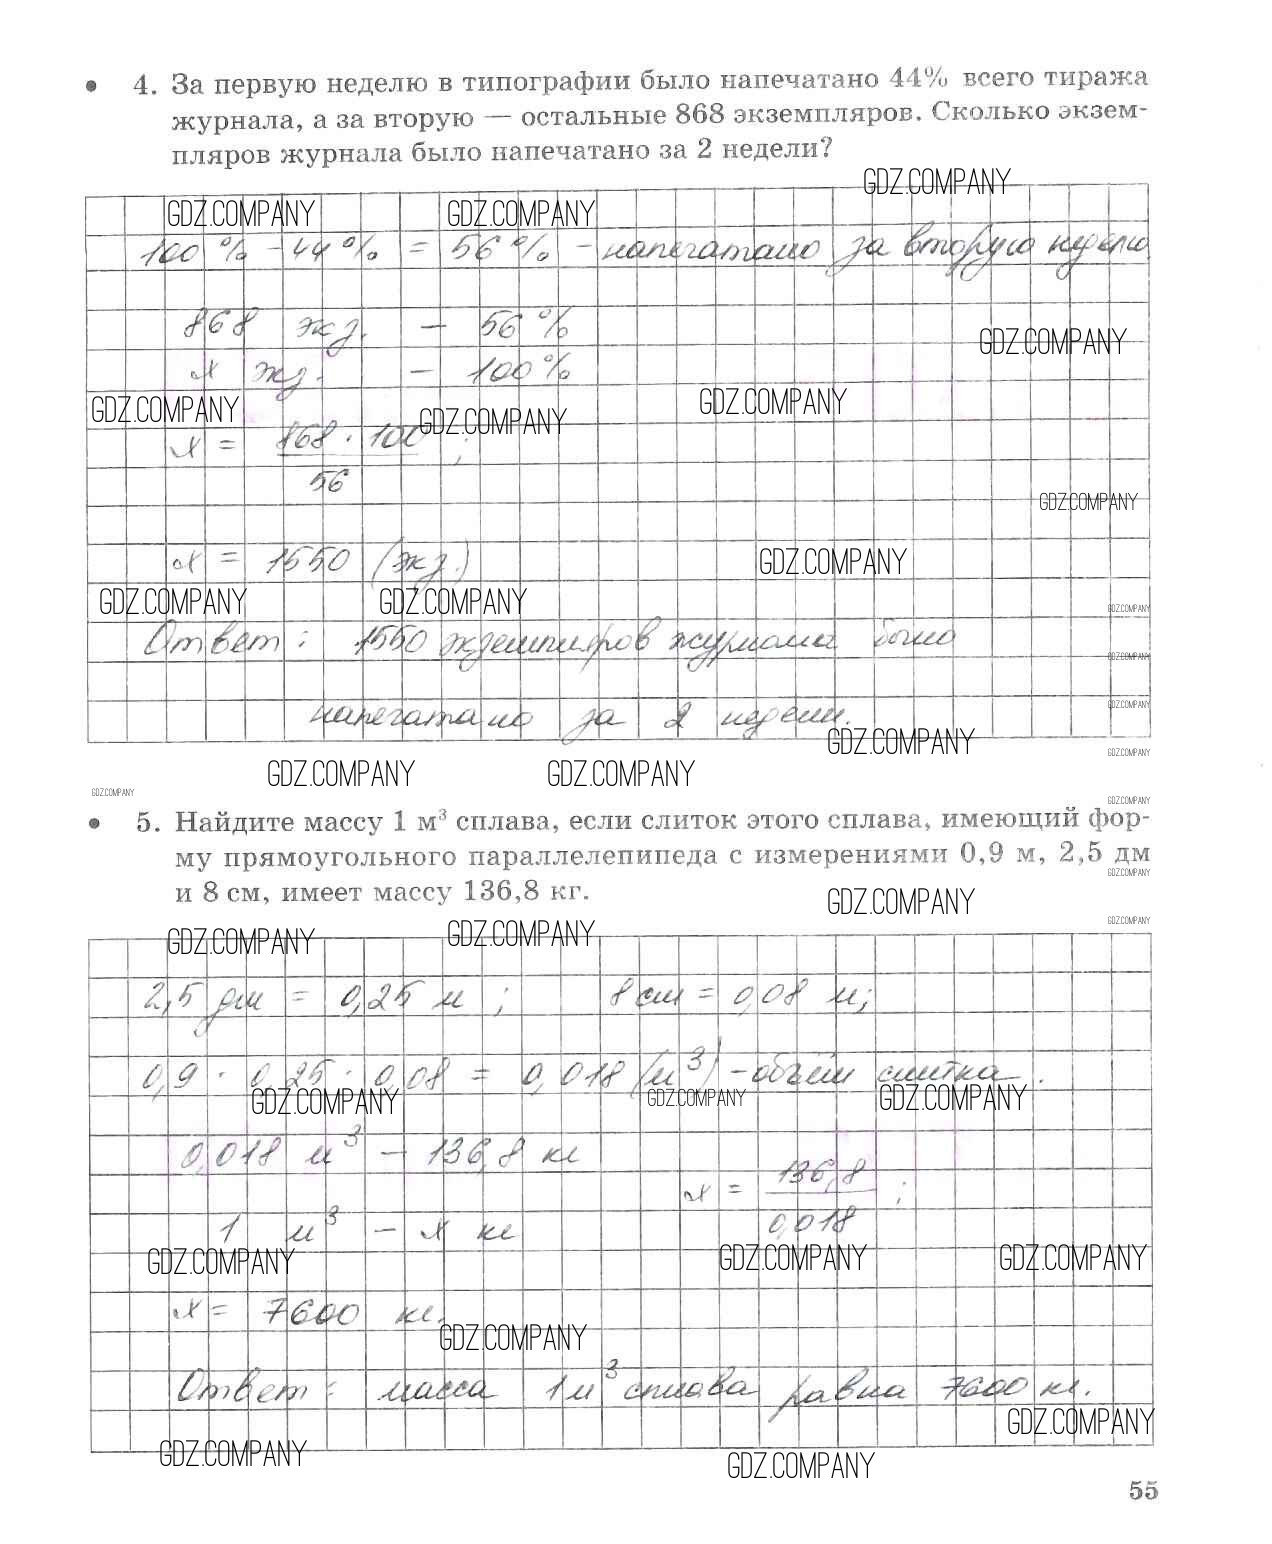 • 4. За первую неделю в типографии было напечатано 44% всего тиража
журнала, а за вторую — остальные 868 экземпляров. Сколько экзем-
пляров журнала было напечатано за 2 недели?
GDZ.COMPANY
GDZ.COMPANY GDZ.COMPANY
100 % - 44 % = 56 % - напечатано за вторую неделю
868 экз. — 56 %
GDZ.COMPANY
x экз. — 100 %
GDZ.COMPANY GDZ.COMPANY GDZ.COMPANY
x = 868 · 100 ;
56
GDZ.COMPANY
x = 1550 (экз.)
GDZ.COMPANY
GDZ.COMPANY GDZ.COMPANY GDZ.COMPANY
Ответ: 1550 экземпляров журнала было
GDZ.COMPANY
GDZ.COMPANY
напечатано за 2 недели.
GDZ.COMPANY GDZ.COMPANY
GDZ.COMPANY GDZ.COMPANY
GDZ.COMPANY GDZ.COMPANY
• 5. Найдите массу 1 м³ сплава, если слиток этого сплава, имеющий фор-
му прямоугольного параллелепипеда с измерениями 0,9 м, 2,5 дм
GDZ.COMPANY
и 8 см, имеет массу 136,8 кг.
GDZ.COMPANY
GDZ.COMPANY
GDZ.COMPANY GDZ.COMPANY
2,5 дм = 0,25 м ; 8 см = 0,08 м;
0,9 · 0,25 · 0,08 = 0,018 (м³) - объём слитка.
GDZ.COMPANY GDZ.COMPANY GDZ.COMPANY
0,018 м³ — 136,8 кг
x = 136,8 ;
0,018
1 м³ — x кг
GDZ.COMPANY GDZ.COMPANY GDZ.COMPANY
x = 7600 кг.
GDZ.COMPANY
Ответ: масса 1м³ сплава равна 7600 кг.
GDZ.COMPANY
GDZ.COMPANY GDZ.COMPANY
55